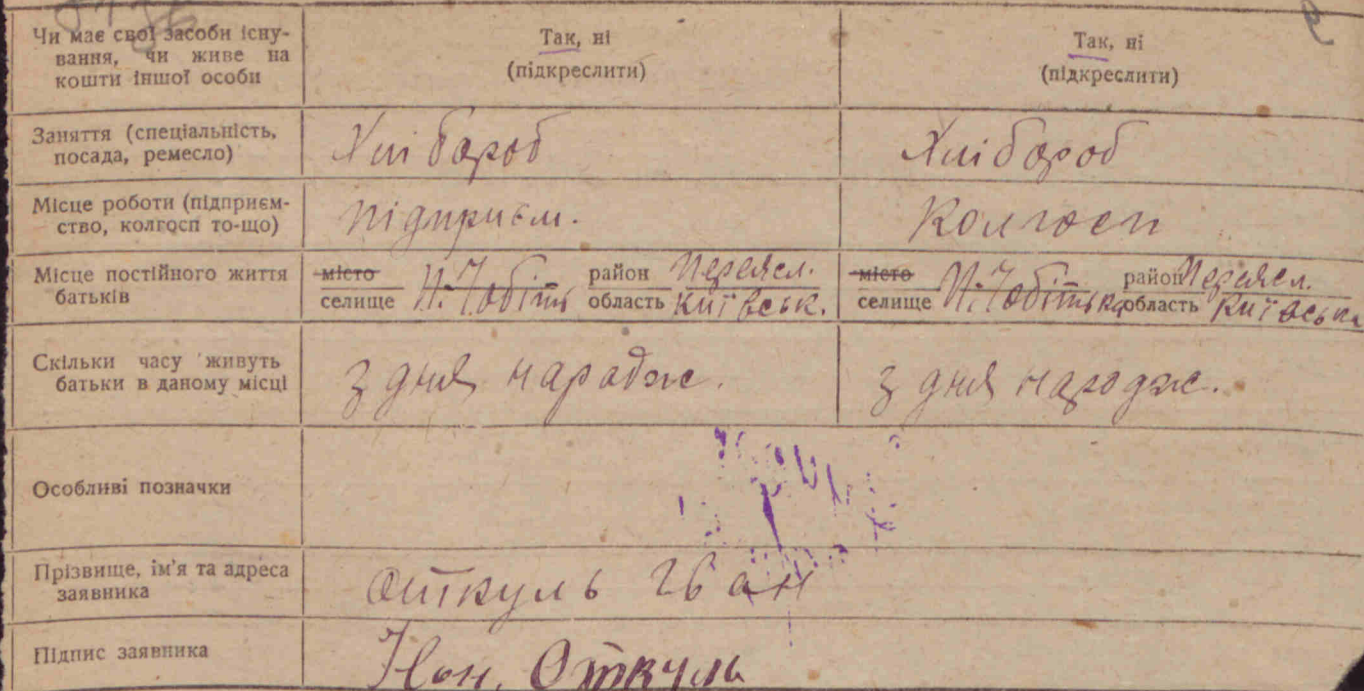 Чи має свої засоби існу-
вання, чи живе на
кошти іншої особи
Так, ні
(підкреслити)
Так, ні
(підкреслити)
Заняття (спеціальність,
посада, ремесло)
Хлібороб
Хлібороб
Місце роботи (підприєм-
ство, колгосп то-що)
підприєм.
Колгосп
Місце постійного життя
батьків
місто
селище
район Переясл.
область Київськ.
місто
селище
район Переясл.
область Київська
Скільки часу живуть
батьки в даному місці
з дня народж.
з дня народж.
Особливі позначки
Прізвище, ім'я та адреса
заявника
Откуль Іван
Підпис заявника
Откуль